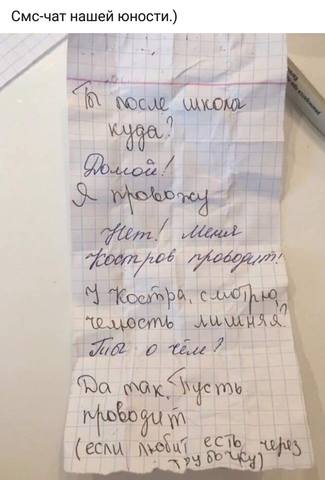 Смс-чат нашей юности.)
Ты после школы
куда?
Домой!
Я провожу
Нет! Меня
Костров проводит!
У Костра, смотрю,
челюсть лишняя?
Ты о чём?
Да так. Пусть
проводит
(если любит есть через
трубочку)